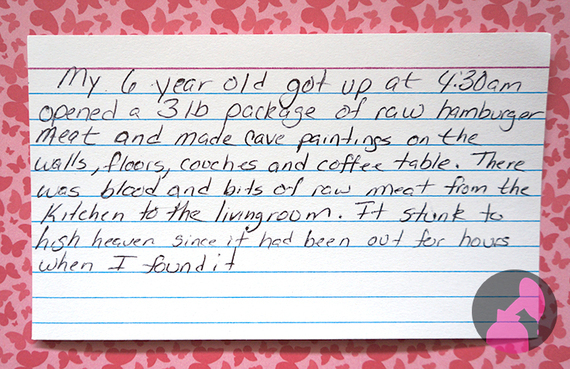 My 6 year old got up at 4:30am
opened a 3lb package of raw hamburger
meat and made cave paintings on the
walls, floors, couches and coffee table. There
was blood and bits of raw meat from the
kitchen to the livingroom. It stunk to
high heaven since it had been out for hours
when I found it